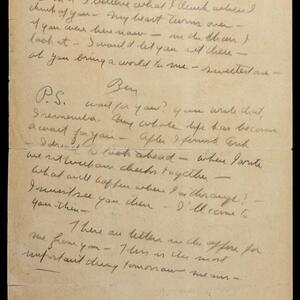 I believe what I think when I
think of you - My heart turns over -
if you were here now - in the chair I
look at - I wouldn't let you sit there -
oh you bring a world to me - sweetest one -
Ben
P.S. wait for you? you wrote that,
I remember. My whole life has become
a wait for you - After I finish
I to look ahead - when I wrote
we
what will happen when I'm through? -
I must see you then - I'll come to
you then -
There are letters in the office for
me from you - This is the most
important thing tomorrow means -